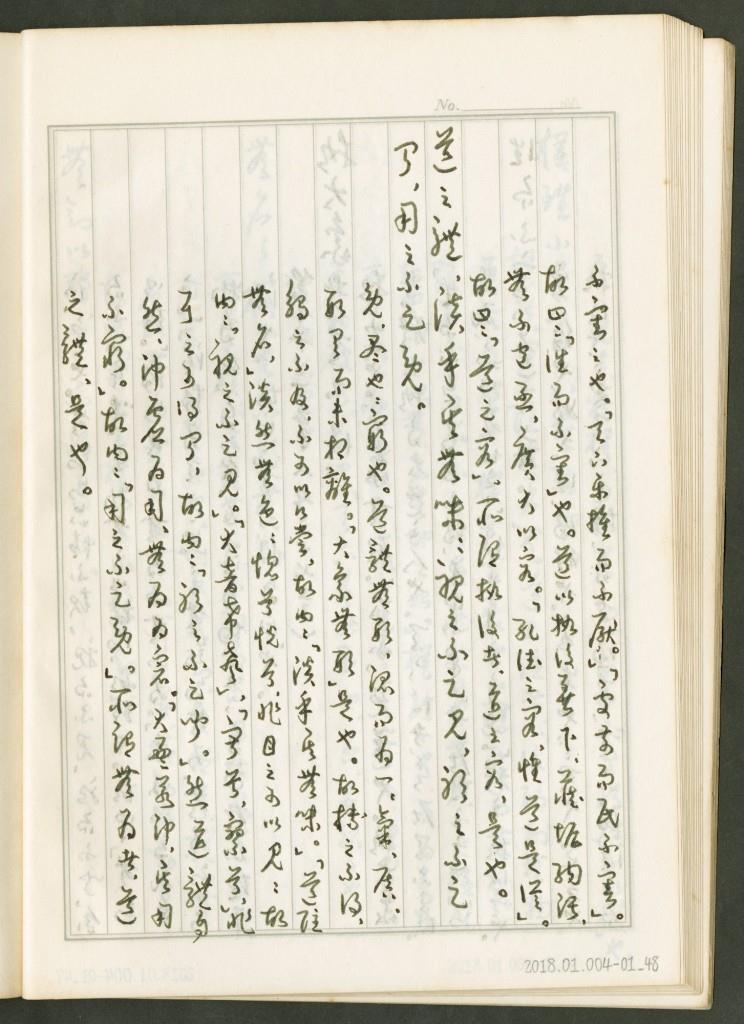 No.
不害之也。「天下樂推而不厭。」「處前而民不害」。
故曰:「往而不害」也。道以執後善下、藏垢納汙、
無不包函、廣大以容。「孔德之容、惟道是從」。
故曰:「道之容」、所謂執後者、道之容、是也。
道之體、淡乎其無味、視之不足見、聽之不足
聞、用之不足既。
既、盡也、窮也。道體無形、混而為一。氣、質、
形具而未相離。「大象無形」是也。故摶之不得、
觸之不及、不可以口嘗、故曰:「淡乎其無味。」「道隱
無名」、淡然無色、惚兮恍兮、非目之可以見、故
曰:「視之不足見。」「大音希聲」、「寂兮、寥兮」、非
耳之可得聞、故曰:「聽之不足聞。」然道體為
然、沖虛為用、無為為容。「大盈若沖、其用
不窮。」故曰:「用之不足既。」所謂無為者、道
之體、是也。
2018.01.004-01_48